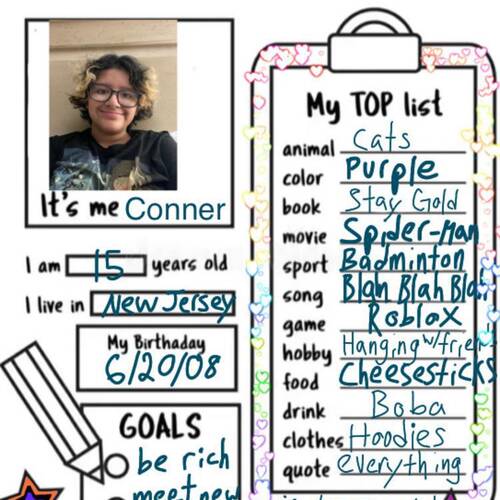 It's me Conner
I am 15 years old
I live in New Jersey
My Birthaday
6/20/08
GOALS
be rich
meet new
My TOP list
animal Cats
color Purple
book Stay Gold
movie Spider-Man
sport Badminton
song Blah Blah Blah
game Roblox
hobby Hanging w/frien
food Cheesesticks
drink Boba
clothes Hoodies
quote everything